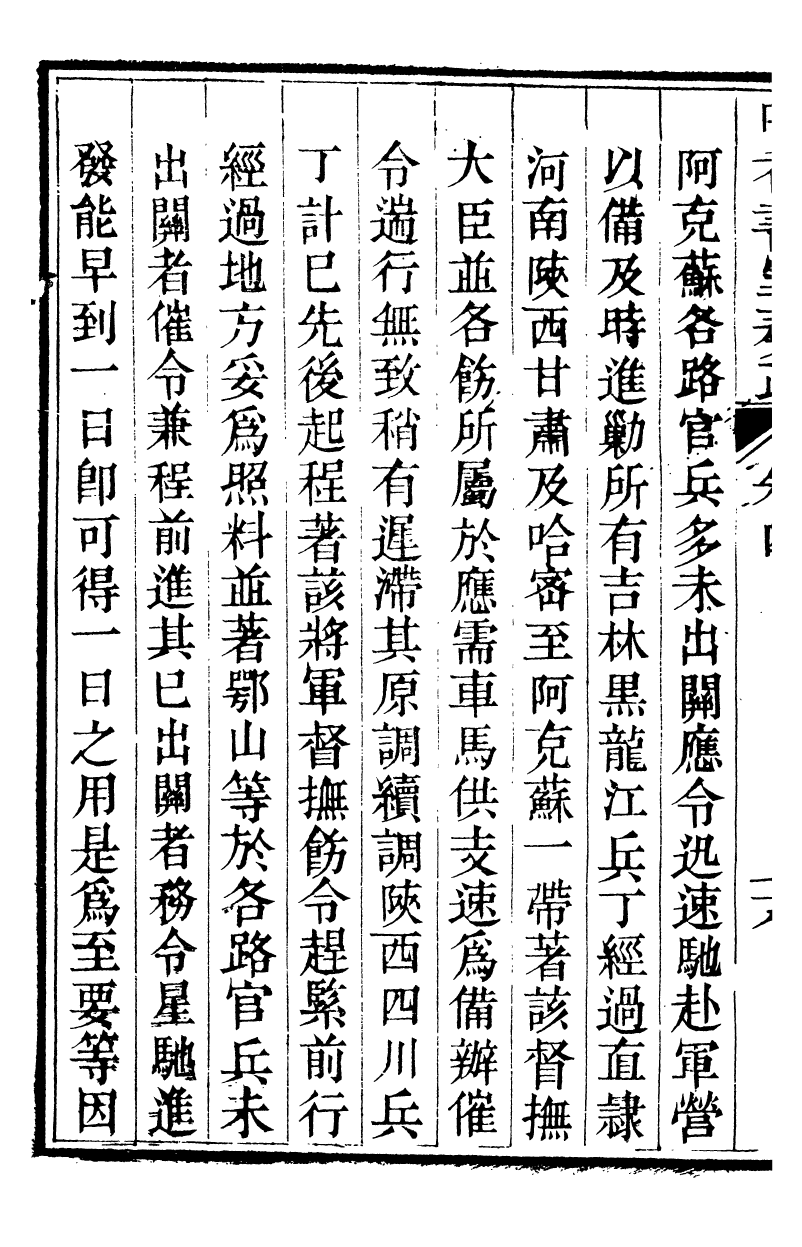 阿克蘇各路官兵多未出關應令迅速馳赴軍營
以備及時進勦所有吉林黑龍江兵丁經過直隷
河南陝西甘肅及哈密至阿克蘇一帶著該督撫
大臣並各飭所屬於應需車馬供支速爲備辦催
令遄行無致稍有遲滯其原調續調陝西四川兵
丁計已先後起程著該將軍督撫飭令趕緊前行
經過地方妥爲照料並著鄂山等於各路官兵未
出關者催令兼程前進其已出關者務令星馳進
發能早到一日卽可得一日之用是爲至要等因